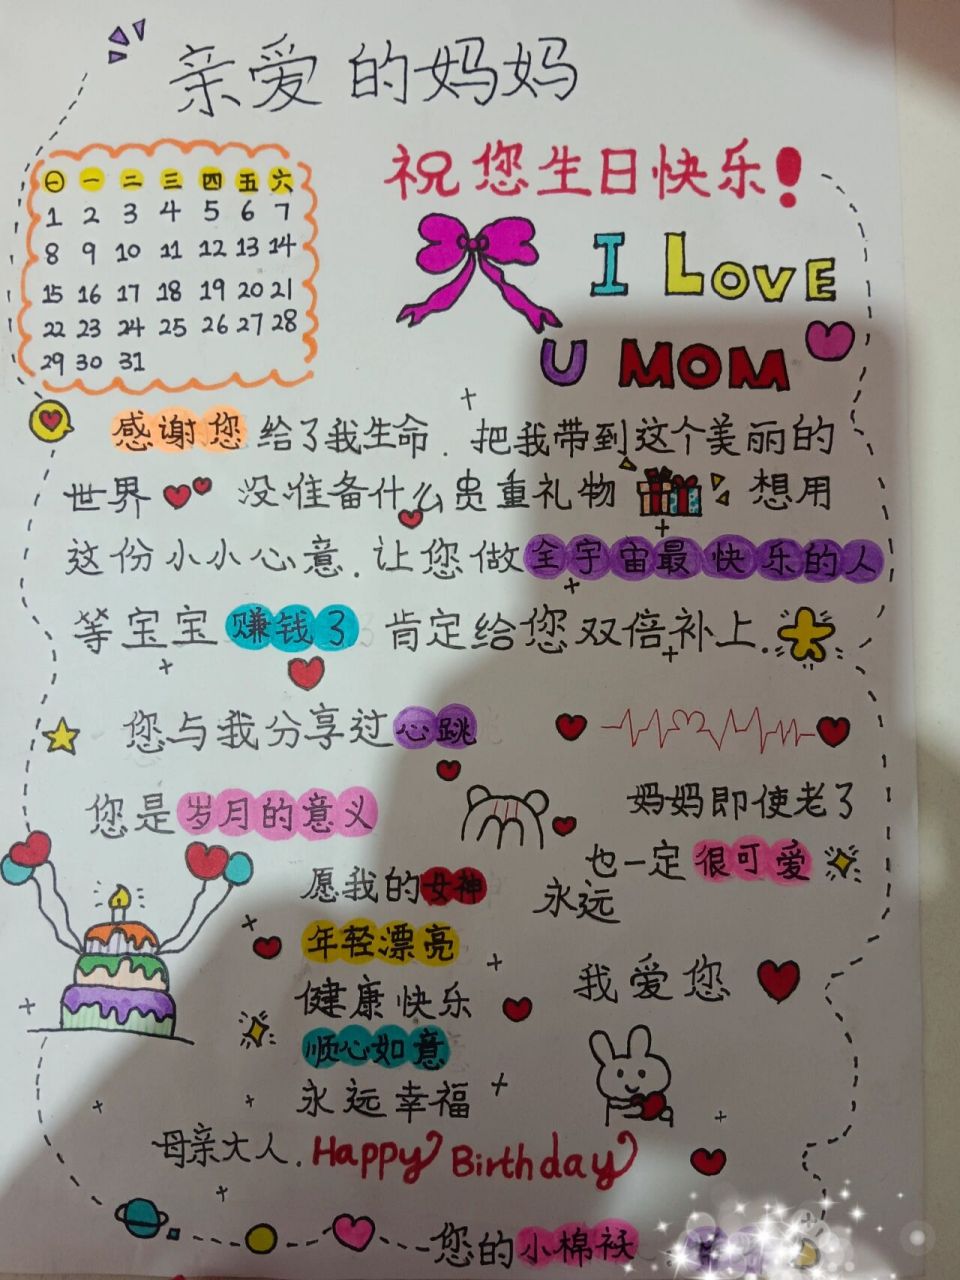 亲爱的妈妈
祝您生日快乐!
日 一 二 三 四 五 六
1 2 3 4 5 6 7
8 9 10 11 12 13 14
15 16 17 18 19 20 21
22 23 24 25 26 27 28
29 30 31
I LOVE
U MOM
感谢您给了我生命.把我带到这个美丽的
世界 没准备什么贵重礼物 想用
这份小小心意.让您做全宇宙最快乐的人
等宝宝赚钱了 肯定给您双倍补上.
您与我分享过心跳
您是岁月的意义
妈妈即使老了
也一定很可爱
永远
愿我的女神
年轻漂亮
健康快乐
顺心如意
永远幸福
我爱您
母亲大人.Happy Birthday
您的小棉袄